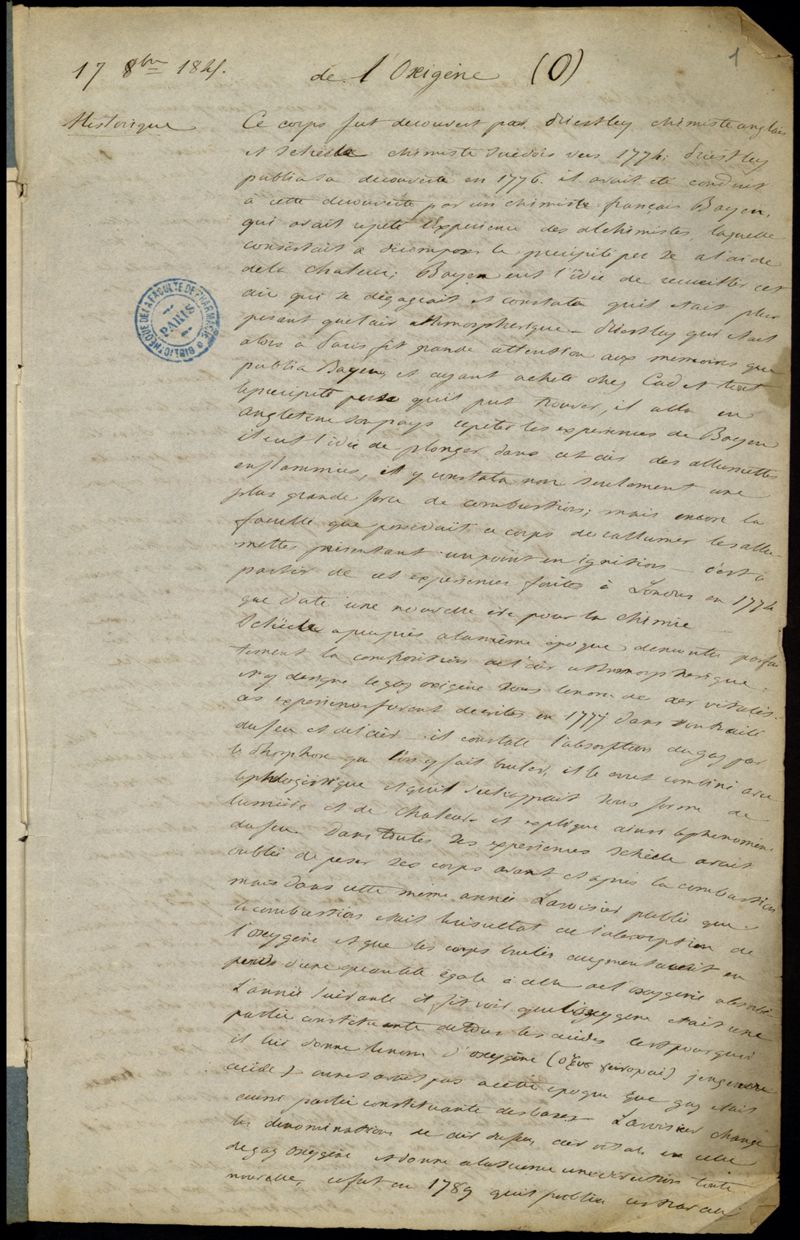 17 8bre 184. de l'Oxigène (O)
1
Historique
Ce corps fut decouvert par Priestley chimiste anglais
et Schèele chimiste suédois vers 1774. Priestley
publia sa decouverte en 1776. il avait été conduit
a cette decouverte par un chimiste français Bayen,
qui avait répété l'expérience des alchimistes, laquelle
consistait a décomposer le précipité per se a l'aide
de la chaleur; Bayen eut l'idée de recueillir cet
air qui se dégageait et constata qu'il était plus
pesant que l'air athmospherique — Priestley qui était
alors a Paris fit grande attention aux memoires que
publia Bayen et ayant acheté chez Cadet tout
le précipité per se qu'il put trouver, il alla en
angleterre son pays répéter les expériences de Bayen
il eut l'idée de plonger dans cet air des allumettes
enflammées, et y constata non seulement une
plus grande force de combustion; mais encore la
faculté que possédait ce corps de rallumer les allu
mettes présentant un point en ignition — c'est à
partir de ces expériences faites à Londres en 1774
que date une nouvelle ère pour la chimie —
Schèele apeuprès a la même époque démontre parfai
tement la composition de l'air athmospherique.
et y designe le gaz oxigène sous le nom de air vital.
ces expériences furent décrites en 1777 dans son traité
du feu et de l'air. il constate l'absorption du gaz par
le Phosphore qu l'on y fait bruler, et le croit combiné avec
le phlogistique et qu'il s'échappait sous forme de
lumière et de chaleur et explique ainsi le phénomène
du feu. Dans toutes ses expériences Schèele avait
oublié de peser ses corps avant et après la combustion
mais dans cette meme année Lavoisier publie que
la combustion était le résultat de l'absorption de
l'oxygène et que les corps brulés augmentaient en
poids d'une quantité égale à celle de l'oxygène absorbé
L'année suivante il fit voir que l'oxygène était une
partie constituante de tous les acides c'est pourquoi
il lui donne le nom d'oxygène (οξυς γεινομαι) j'engendre
acide) on ne savait pas a cette époque que ce gaz était
aussi partie constituante des bases — Lavoisier change
les dénominations de air du feu, air vital en celle
de gaz oxygène et donne a la science une extension toute
nouvelle, ce fut en 1789 qu'il publia ces travaux
BIBLIOTHÈQUE DE LA FACULTÉ DE PHARMACIE
PARIS